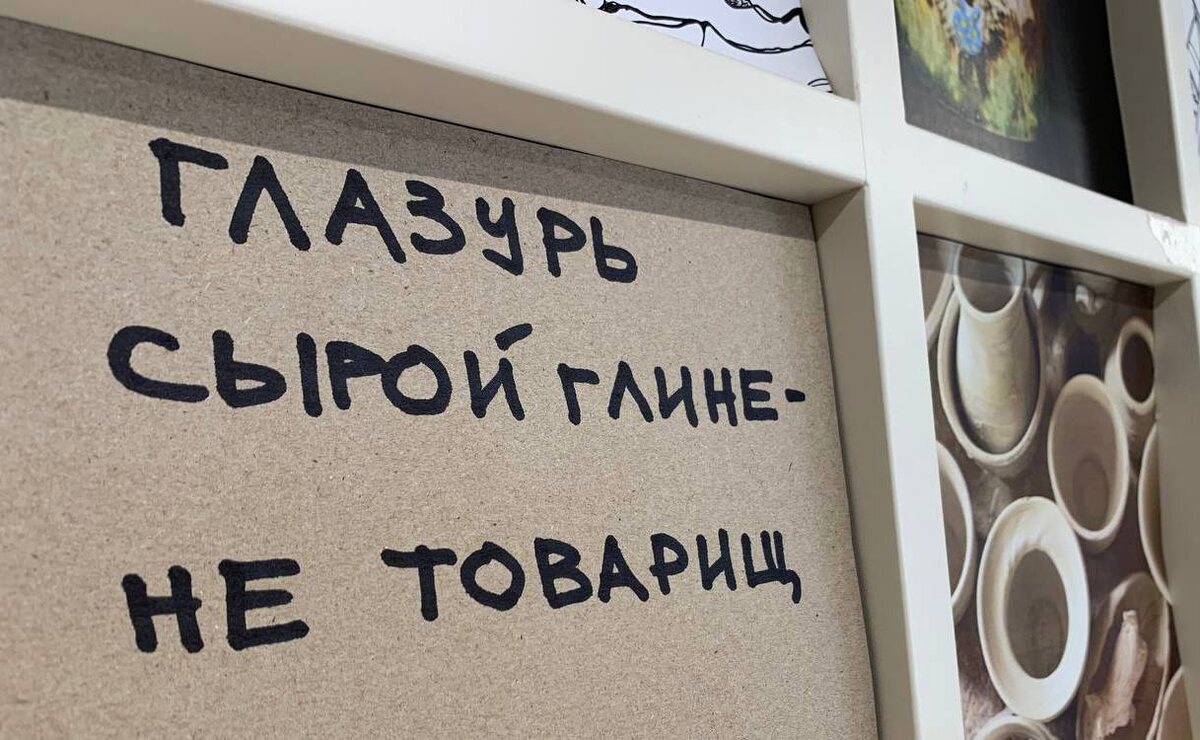 ГЛАЗУРЬ
СЫРОЙ ГЛИНЕ-
НЕ ТОВАРИЩ